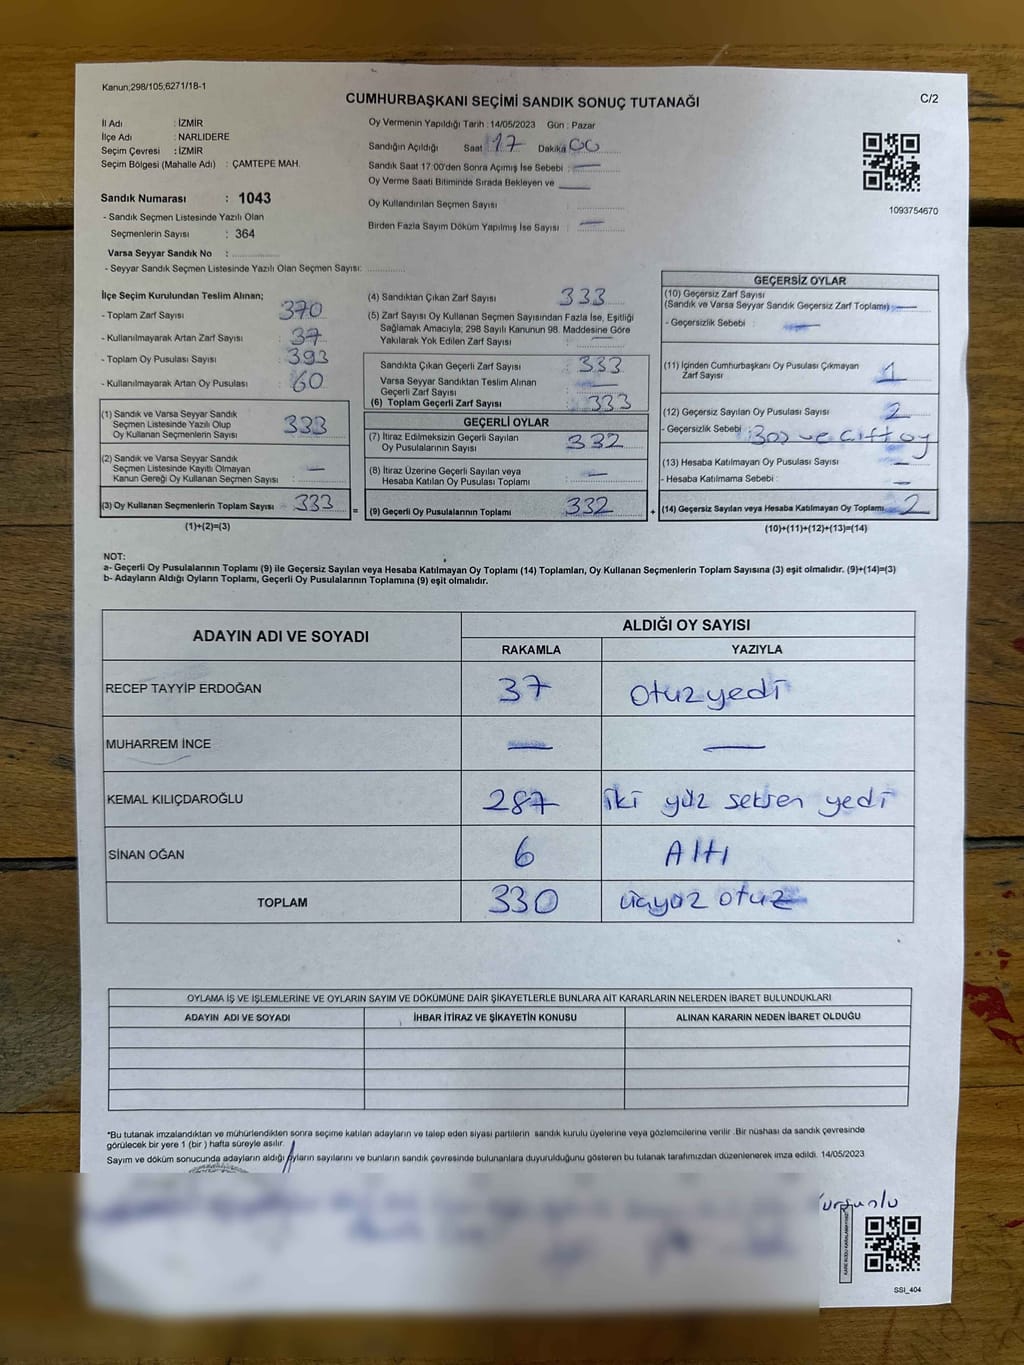 Kanun;298/105;6271/18-1
CUMHURBAŞKANI SEÇİMİ SANDIK SONUÇ TUTANAĞI
C/2
İl Adı : İZMİR
İlçe Adı : NARLIDERE
Seçim Çevresi : İZMİR
Seçim Bölgesi (Mahalle Adı) : ÇAMTEPE MAH.
Sandık Numarası : 1043
- Sandık Seçmen Listesinde Yazılı Olan
Seçmenlerin Sayısı : 364
Varsa Seyyar Sandık No :
- Seyyar Sandık Seçmen Listesinde Yazılı Olan Seçmen Sayısı:
Oy Vermenin Yapıldığı Tarih : 14/05/2023 Gün : Pazar
Sandığın Açıldığı Saat 17 Dakika 00
Sandık Saat 17:00'den Sonra Açımış İse Sebebi : —
Oy Verme Saati Bitiminde Sırada Bekleyen ve
Oy Kullandırılan Seçmen Sayısı :
Birden Fazla Sayım Döküm Yapılmış İse Sayısı : —
1093754670
İlçe Seçim Kurulundan Teslim Alınan;
- Toplam Zarf Sayısı : 370
- Kullanılmayarak Artan Zarf Sayısı : 37
- Toplam Oy Pusulası Sayısı : 393
- Kullanılmayarak Artan Oy Pusulası : 60
(1) Sandık ve Varsa Seyyar Sandık
Seçmen Listesinde Yazılı Olup
Oy Kullanan Seçmenlerin Sayısı : 333
(2) Sandık ve Varsa Seyyar Sandık
Seçmen Listesinde Kayıtlı Olmayan
Kanun Gereği Oy Kullanan Seçmen Sayısı : —
(3) Oy Kullanan Seçmenlerin Toplam Sayısı : 333
(1)+(2)=(3)
(4) Sandıktan Çıkan Zarf Sayısı : 333
(5) Zarf Sayısı Oy Kullanan Seçmen Sayısından Fazla İse, Eşitliği
Sağlamak Amacıyla; 298 Sayılı Kanunun 98. Maddesine Göre
Yakılarak Yok Edilen Zarf Sayısı : —
Sandıkta Çıkan Geçerli Zarf Sayısı : 333
Varsa Seyyar Sandıktan Teslim Alınan
Geçerli Zarf Sayısı : —
(6) Toplam Geçerli Zarf Sayısı : 333
GEÇERLİ OYLAR
(7) İtiraz Edilmeksizin Geçerli Sayılan
Oy Pusulasının Sayısı : 332
(8) İtiraz Üzerine Geçerli Sayılan veya
Hesaba Katılan Oy Pusulası Toplamı : —
= (9) Geçerli Oy Pusulalarının Toplamı : 332
GEÇERSİZ OYLAR
(10) Geçersiz Zarf Sayısı
(Sandık ve Varsa Seyyar Sandık Geçersiz Zarf Toplamı) —
- Geçersizlik Sebebi : —
(11) İçinden Cumhurbaşkanı Oy Pusulası Çıkmayan
Zarf Sayısı : 1
(12) Geçersiz Sayılan Oy Pusulası Sayısı : 2
- Geçersizlik Sebebi : Boş ve çift oy
(13) Hesaba Katılmayan Oy Pusulası Sayısı : —
- Hesaba Katılmama Sebebi : —
+ (14) Geçersiz Sayılan veya Hesaba Katılmayan Oy Toplamı 2
(10)+(11)+(12)+(13)=(14)
NOT:
a- Geçerli Oy Pusulalarının Toplamı (9) ile Geçersiz Sayılan veya Hesaba Katılmayan Oy Toplamı (14) Toplamları, Oy Kullanan Seçmenlerin Toplam Sayısına (3) eşit olmalıdır. (9)+(14)=(3)
b- Adayların Aldığı Oyların Toplamı, Geçerli Oy Pusulalarının Toplamına (9) eşit olmalıdır.
ADAYIN ADI VE SOYADI ALDIĞI OY SAYISI
RAKAMLA YAZIYLA
RECEP TAYYİP ERDOĞAN 37 otuz yedi
MUHARREM İNCE — —
KEMAL KILIÇDAROĞLU 287 iki yüz seksen yedi
SİNAN OĞAN 6 Altı
TOPLAM 330 üçyüz otuz
OYLAMA İŞ VE İŞLEMLERİNE VE OYLARIN SAYIM VE DÖKÜMÜNE DAİR ŞİKAYETLERLE BUNLARA AİT KARARLARIN NELERDEN İBARET BULUNDUKLARI
ADAYIN ADI VE SOYADI İHBAR İTİRAZ VE ŞİKAYETİN KONUSU ALINAN KARARIN NEDEN İBARET OLDUĞU
*Bu tutanak imzalandıktan ve mühürlendikten sonra seçime katılan adayların ve talep eden siyasi partilerin sandık kurulu üyelerine veya gözlemcilerine verilir .Bir nüshası da sandık çevresinde
görülecek bir yere 1 (bir ) hafta süreyle asılır.
Sayım ve döküm sonucunda adayların aldığı oyların sayılarını ve bunların sandık çevresinde bulunanlara duyurulduğunu gösteren bu tutanak tarafımızdan düzenlenerek imza edildi. 14/05/2023
SSI_404